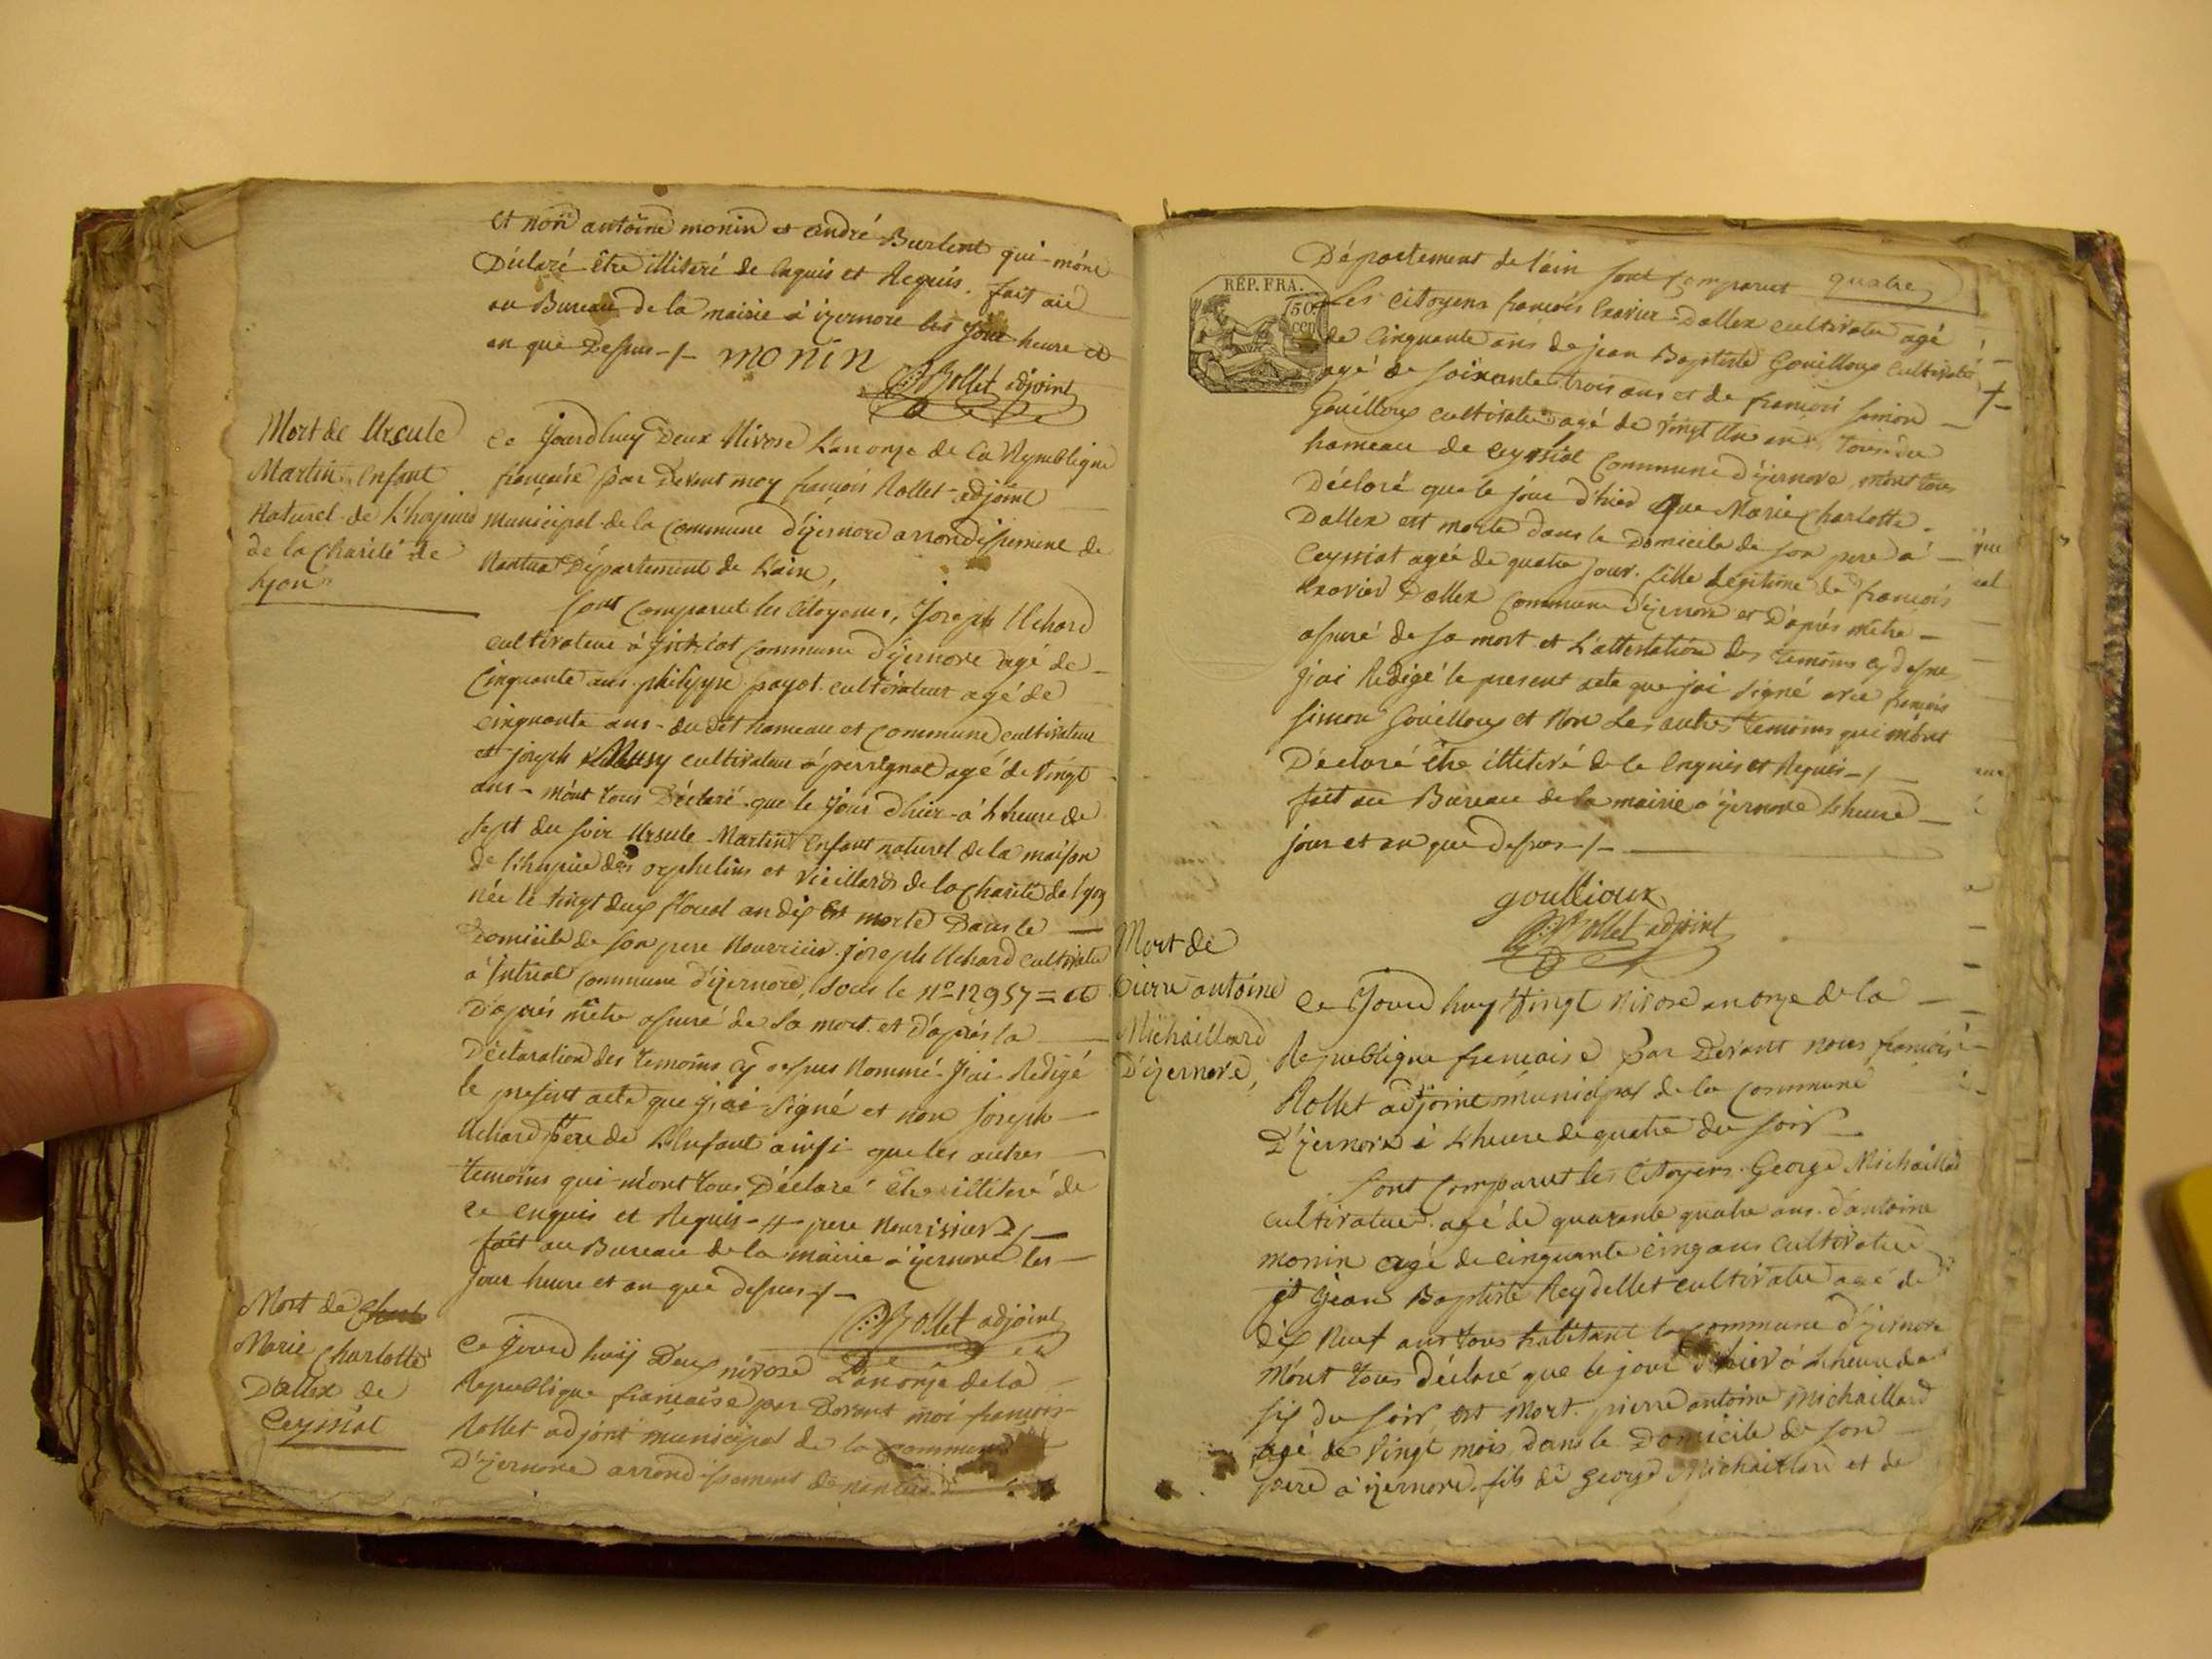 et non antoine monin et andré Burlent qui mónt
Déclaré être illiteré de Enquis et Requis. fait aú
au Bureau de la mairie à izernore les Jour heure et
an que Dessus -/- monin
Rollet adjoint
Mort de Ursule
Martin Enfant
Naturel de L'hospice
de la Charité de
Lyon
Ce Jourdhuy Deux Nivose L'an onze de la Republique
francaise par Devant moy francois Rollet adjoint
municipal de la Commune d'izernore arrondissement de
Nantua Département de L'ain,
Sont Comparut les Citoyens, Joseph Uchard
cultivateur à Intriat Commune d'izernore agé de
Cinquante ans philippe payot cultivateur agé de
cinquante ans - du dit hameau et Commune cultivateur
et joseph Musy cultivateur à perrignat agé de Vingt
ans - mónt tous Déclaré que le Jour d'hier à L'heure de
Sept du soir Ursule Martin Enfant naturel de la maison
de L'hospice des orphelins et Vieillards de la Charité de Lyon
née le Vingt deux floreal an dix Est morte Dans le
Domicile de son pere Nourricier Joseph Uchard Cultivateur
à Intriat Commune d'izernore, sous le No 12957 = et
D'aprés mêtre assuré de Sa mort et d'aprés la
Déclaration des temoins cy dessus Nommé Jai Redigé
le present acte que Jai Signé et non Joseph
Uchard Pere de L'Enfant ainsi que les autres
temoins qui mónt tous Déclaré Etre illiteré de
ce enquis et Requis -//- pere Nourissier -/-
fait au Bureau de la mairie à izernore les
Jour heure et an que dessus -/-
Rollet adjoint
Mort de
Marie Charlotte
Dallex de
Ceyssiat
Ce Jourd huy Deux nivose L'an onze de la
Republique francaise par Devant moi francois
Rollet adjoint municipal de la Commune
D'izernore arrondissement de nantua
REP. FRA.
50
cen
Département de L'ain sont Comparut quatre
Les Citoyens francois Xavier Dallex cultivateur agé
de Cinquante ans de jean Baptiste Gouilloux Cultivateur
agé de soixante trois ans et de francois simon
Gouilloux cultivateur agé de vingt un ans tous du
hameau de Ceyssiat Commune d'izernore, mónt tous
Déclaré que le jour d'hier que Marie Charlotte
Dallex est morte dans le Domicile de son pere à
Ceyssiat agée de quatre jour. fille Legitime de francois
Xavier Dallex Commune d'izernore et D'aprés mêtre
assuré de sa mort et L'attestation des temoins cy dessus
Jiai Redigé le present acte que jai signé avec francois
simon Gouilloux et Non Les autres temoins qui mónt
Déclaré être illiteré de ce Enquis et Requis -/-
fait au Bureau de la mairie à izernore L'heure
jour et an que dessus -/-
goullioux
Rollet adjoint
Mort de
Pierre antoine
Michaillard
D'izernore,
Ce Jourd huy Vingt Nivose an onze de la
Republique francaise Par Devant nous francois
Rollet adjoint municipal de la Commune
D'izernore à L'heure de quatre du Soir
Sont Comparut les Citoyens George Michaillard
cultivateur agé de quarante quatre ans. d'antoine
monin agé de cinquante cinq ans Cultivateur
et Jean Baptiste Reydellet cultivateur agé de
dix Neuf ans tous habitant la Commune d'izernore
Mónt tous déclaré que le jour d'hier à L'heure de
six du Soir Est Mort. pierre antoine Michaillard
agé de Vingt mois dans le Domicile de son
pere à izernore. fils de George Michaillard et de